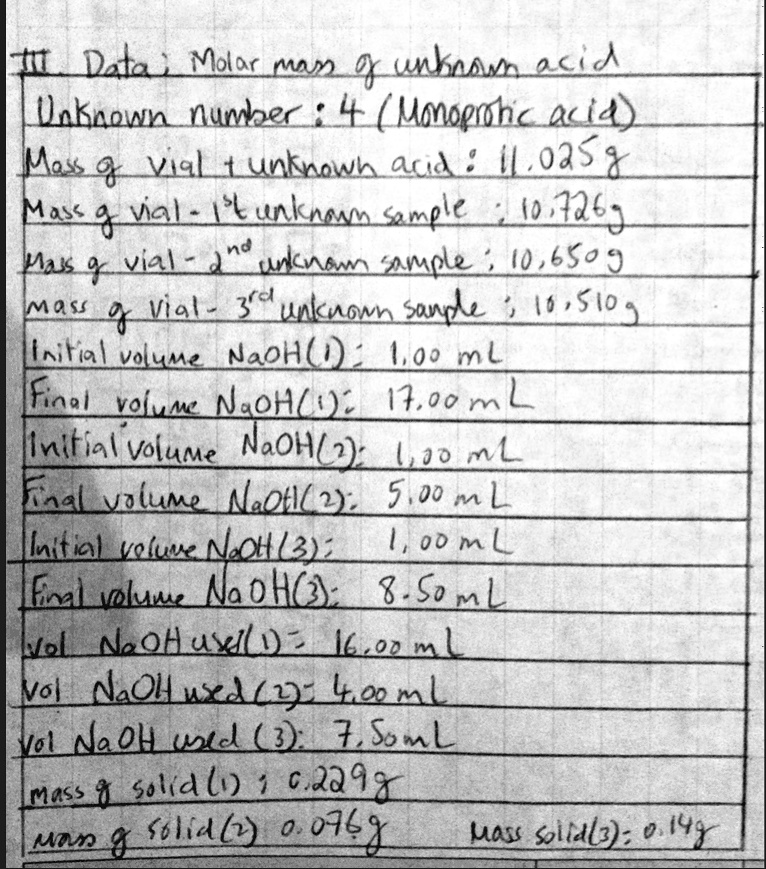 III. Data; Molar mass of unknown acid
Unknown number : 4 (Monoprotic acid)
Mass of vial + unknown acid : 11.025g
Mass of vial - 1st unknown sample : 10.726g
Mass of vial - 2nd unknown sample : 10.650g
mass of vial - 3rd unknown sample ; 10.510g
Initial volume NaOH(1): 1.00 mL
Final volume NaOH(1): 17.00 mL
Initial volume NaOH(2): 1.00 mL
Final volume NaOH(2): 5.00 mL
Initial volume NaOH(3): 1.00 mL
Final volume NaOH(3): 8.50 mL
Vol NaOH used(1)= 16.00 mL
Vol NaOH used (2)= 4.00 mL
Vol NaOH used (3): 7.50mL
mass of solid(1) ; 0.229g
mass of solid(2) 0.076g Mass solid(3): 0.14g